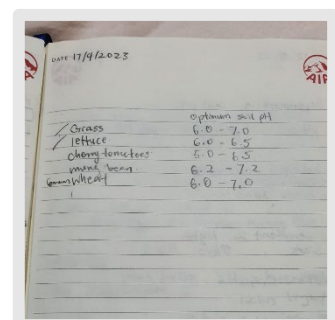 DATE 17/9/2023
AIA
optimum soil pH
Grass 6.0 - 7.0
lettuce 6.0 - 6.5
cherry tomatoes 5.0 - 6.5
mung bean 6.2 - 7.2
wheat 6.0 - 7.0